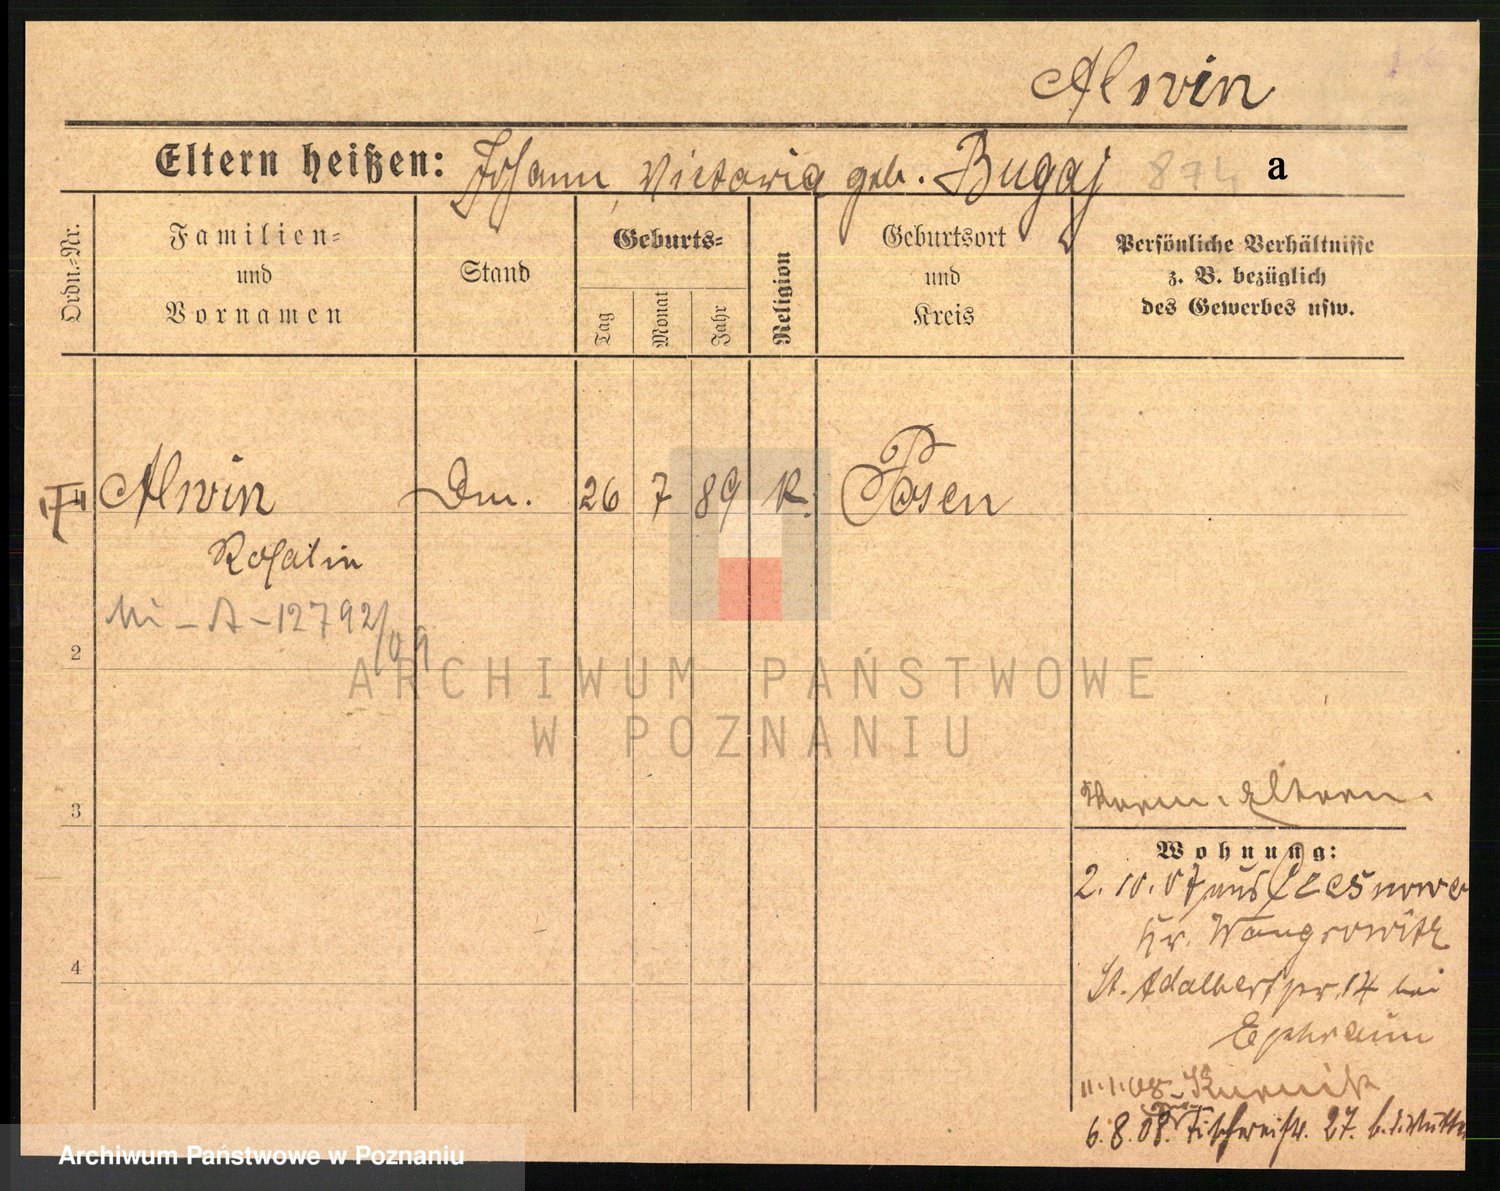 Alwin
Eltern heißen: Johann, Victoria geb. Bugaj 874 a
Ordn.-Nr.
Familien-
und
Vornamen
Stand
Geburts-
Tag
Monat
Jahr
Religion
Geburtsort
und
Kreis
Persönliche Verhältnisse
z. B. bezüglich
des Gewerbes usw.
Alwin Dm. 26 7 89 K. Posen
Rosalin
A-12792/09
2
ARCHIWUM PAŃSTWOWE
W POZNANIU
3
Eltern.
Wohnung:
2.10.07 aus
Kr. Wongrowitz
St. Adalbertstr. 14 bei
Ephraim
11.1.08 Kurnik
6.8.08. Fischereistr. 27. b. d. Mutter
4
Archiwum Państwowe w Poznaniu